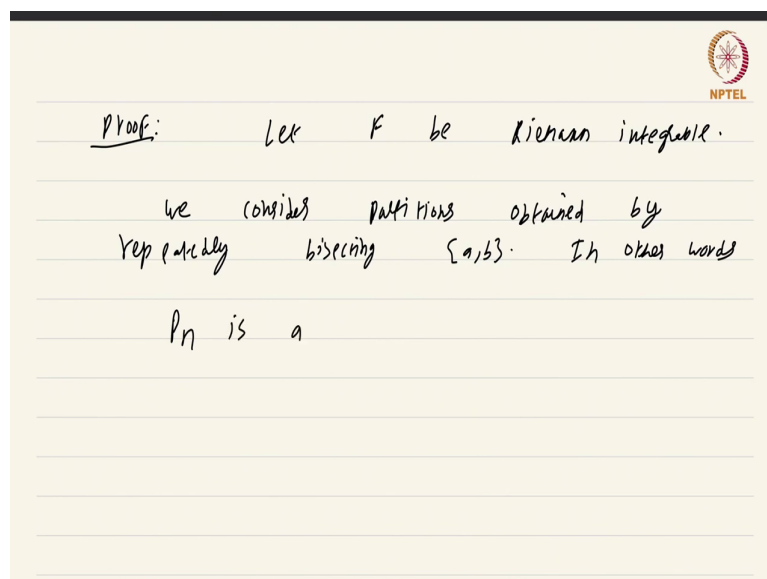 NPTEL
Proof: Let F be Riemann integrable.
We consider partitions obtained by
repeatedly bisecting [a,b]. In other words
Pn is a